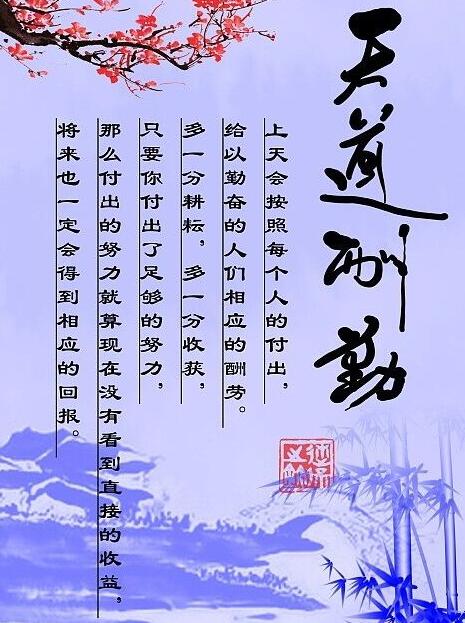 天道酬勤
上天会按照每个人的付出，
给以勤奋的人们相应的酬劳。
多一分耕耘，多一分收获，
只要你付出了足够的努力，
那么付出的努力就算现在没有看到直接的收益，
将来也一定会得到相应的回报。